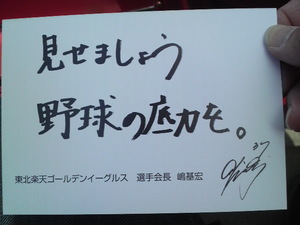 見せましょう
野球の底力を。
37
東北楽天ゴールデンイーグルス 選手会長 嶋基宏